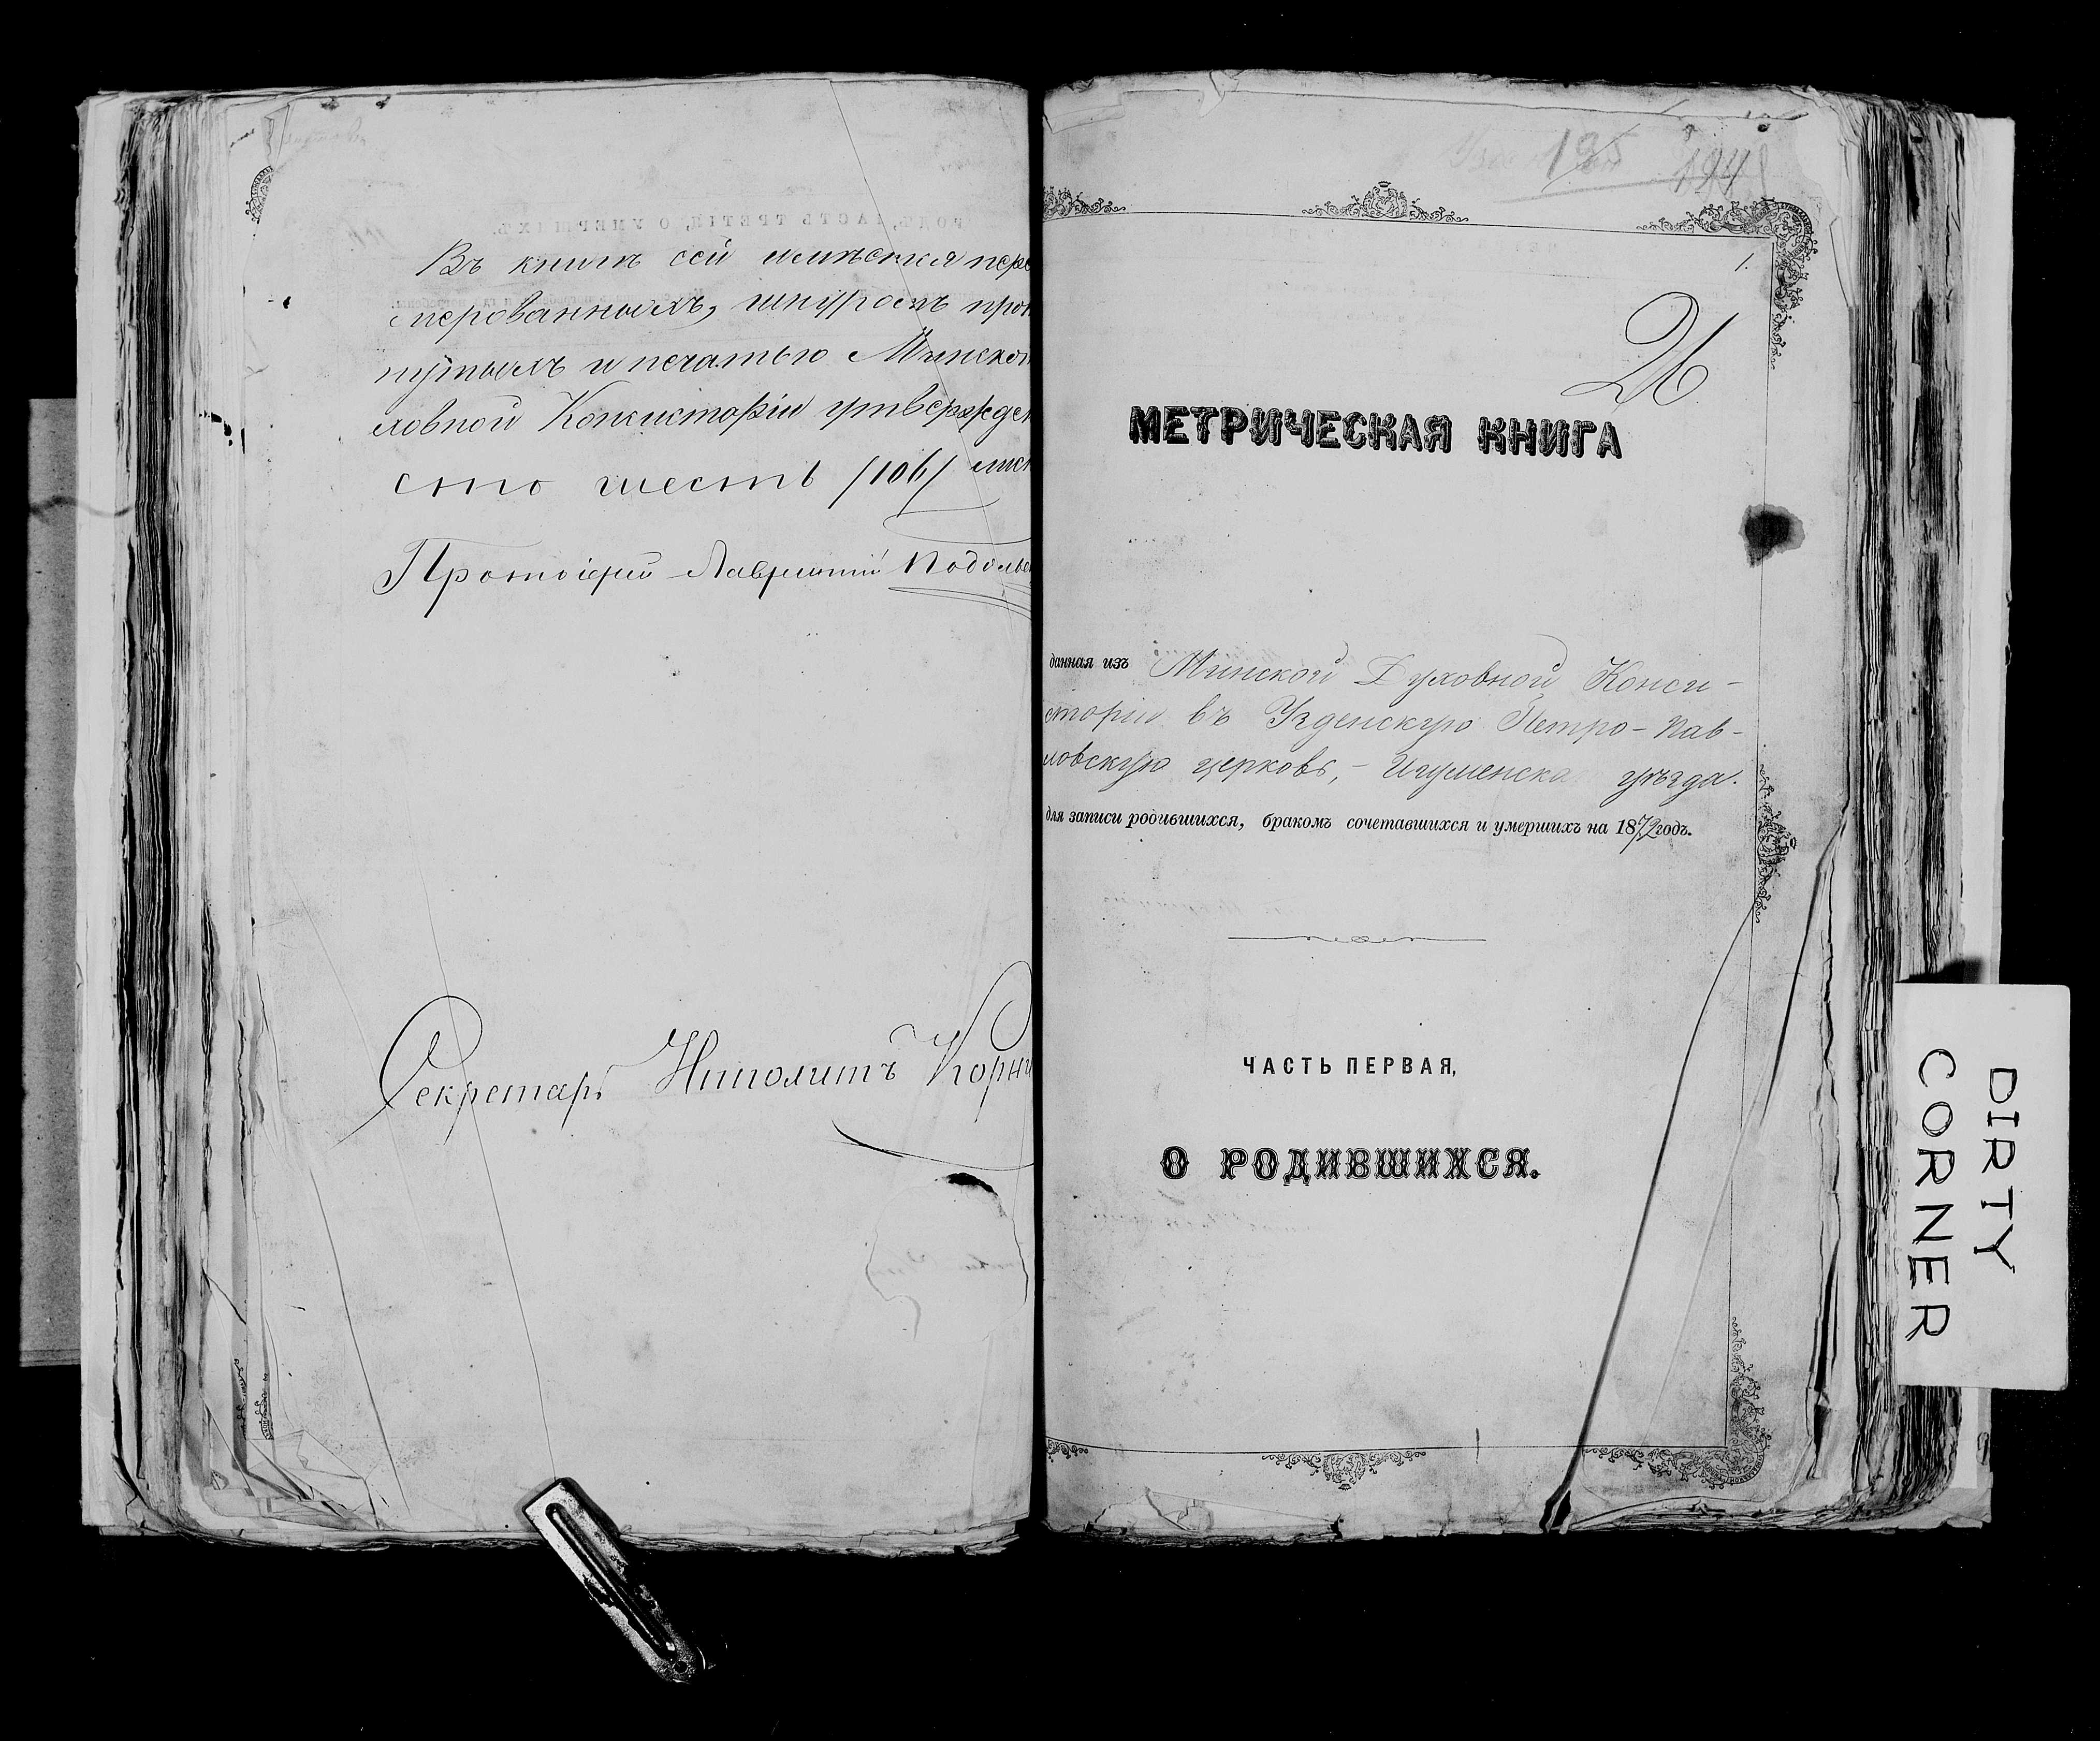 Въ книгѣ сей имѣется пере
мерованныхъ, шнуромъ прон
нутымъ и печатью Минской
ловной Консисторіи утвержден
сто шесть /106/ лист
Протоіерей Лаврентій Подольс
Секретарь Ипполитъ Корни
195
194
1.
26.
МЕТРИЧЕСКАЯ КНИГА
данная изъ Минской Духовной Конси-
сторіи въ Узденскую Петро-Пав-
ловскую церковь, - Игуменска уѣзда.
для записи родившихся, бракомъ сочетавшихся и умершихъ на 1872 годъ.
ЧАСТЬ ПЕРВАЯ,
О РОДИВШИХСЯ.
DIRTY
CORNER